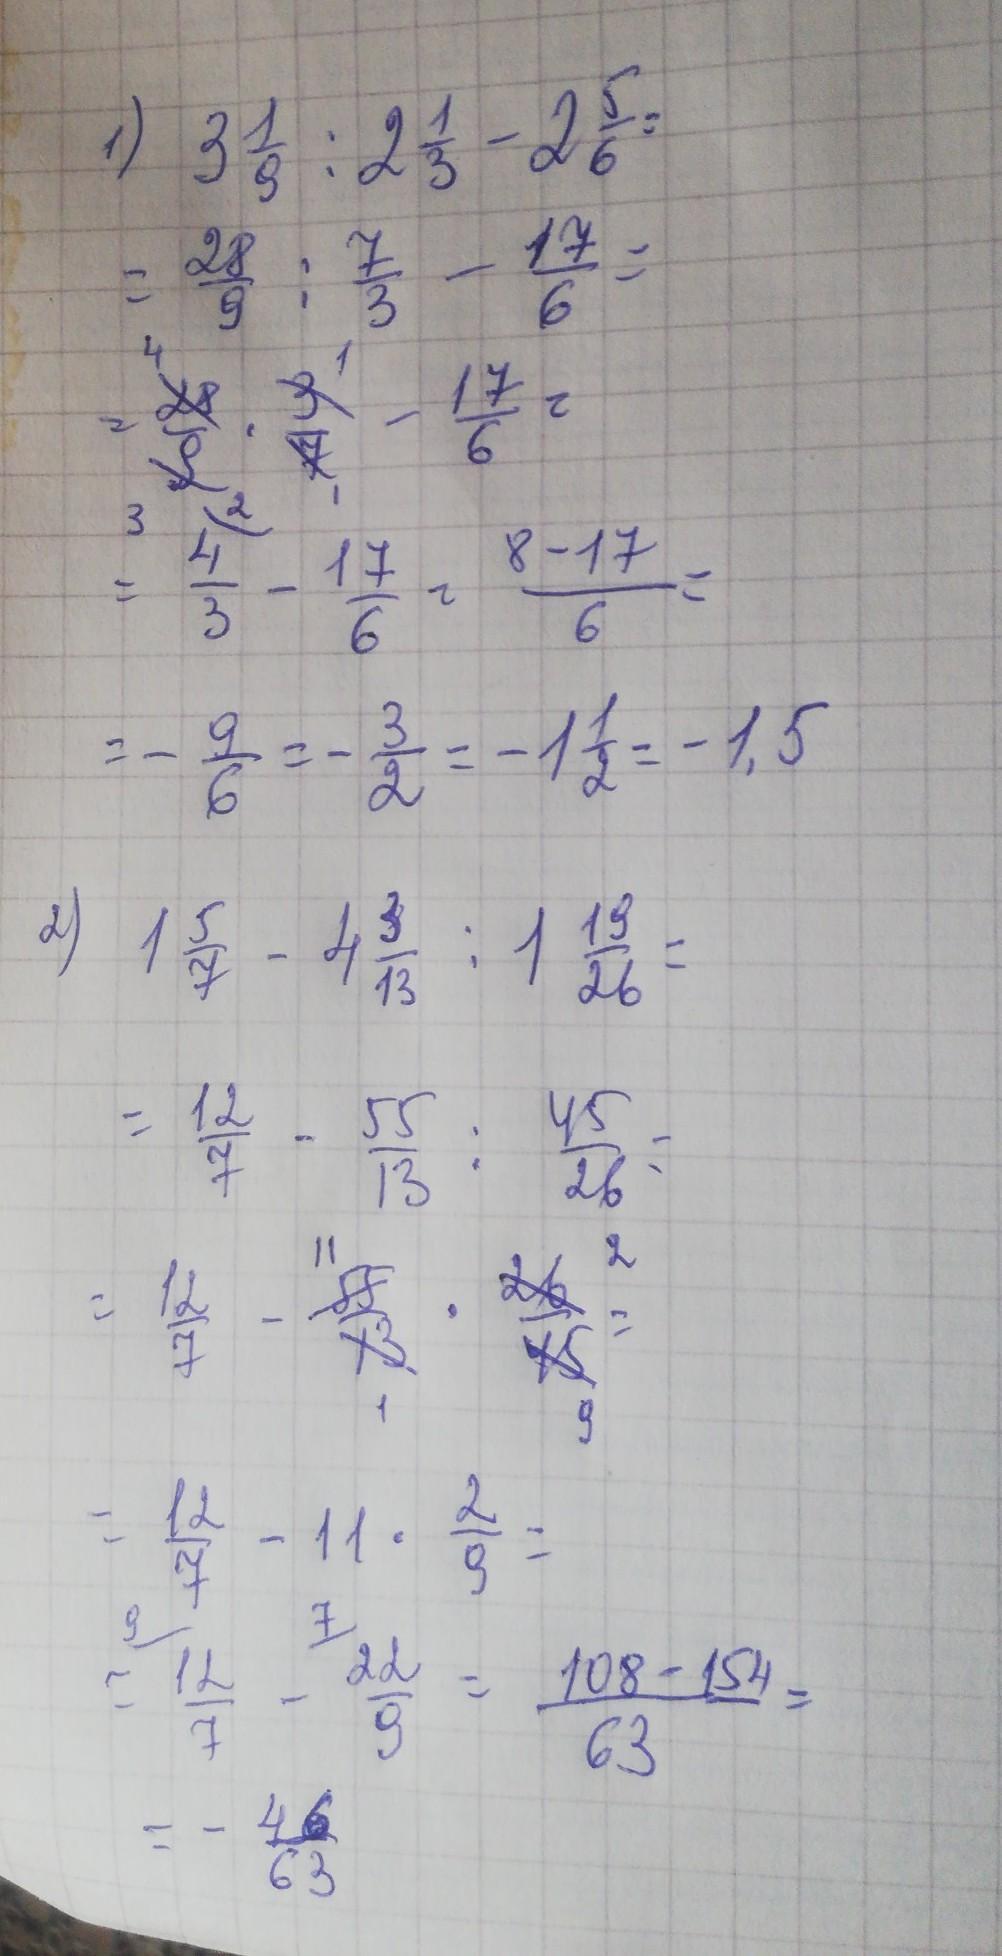 1) 3 1/9 : 2 1/3 - 2 5/6 =
= 28/9 : 7/3 - 17/6 =
4 1
= 28/9 · 3/7 - 17/6 =
3 1
2
= 4/3 - 17/6 = (8-17)/6 =
= - 9/6 = - 3/2 = - 1 1/2 = - 1,5
2) 1 5/7 - 4 3/13 : 1 19/26 =
= 12/7 - 55/13 : 45/26 =
11 2
= 12/7 - 55/13 · 26/45 =
1 9
= 12/7 - 11 · 2/9 =
9 7
= 12/7 - 22/9 = (108-154)/63 =
= - 46/63